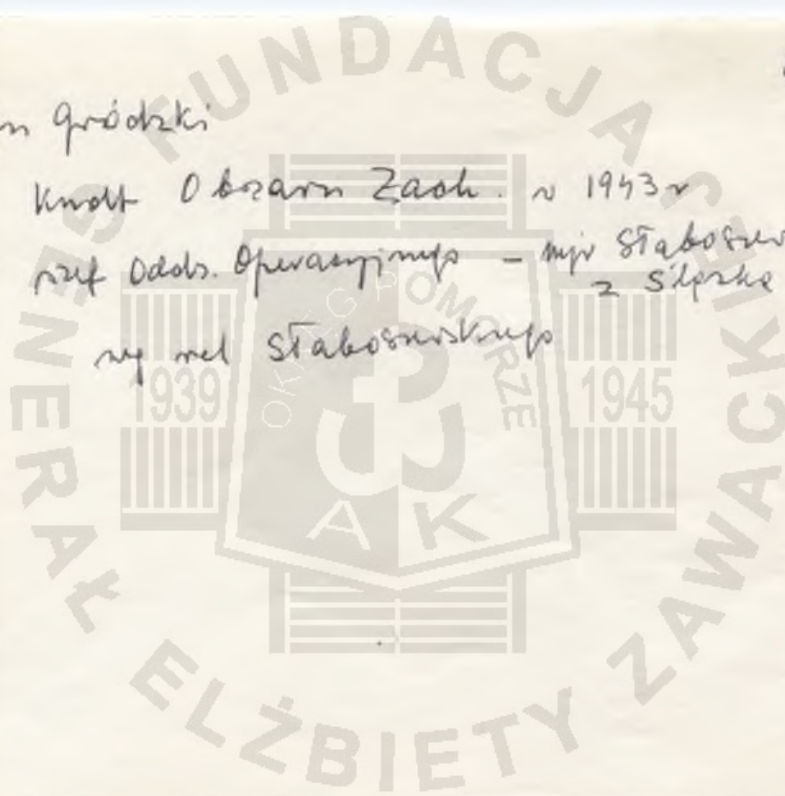 n Gródzki
Kndt Obszaru Zach. w 1943 r
szef Oddz. Operacyjnego - mjr Słaboszew
z Śląska
wg rel Słaboszewskiego
FUNDACJA GENERAŁ ELŻBIETY ZAWACKIEJ
OKRĘG POMORZE
1939
1945
AK